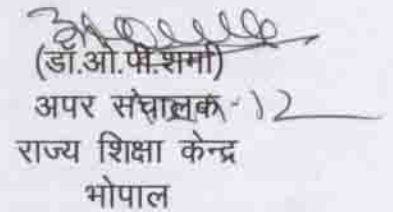 (डॉ.ओ.पी.शर्मा)
अपर संचालक-12
राज्य शिक्षा केन्द्र
भोपाल